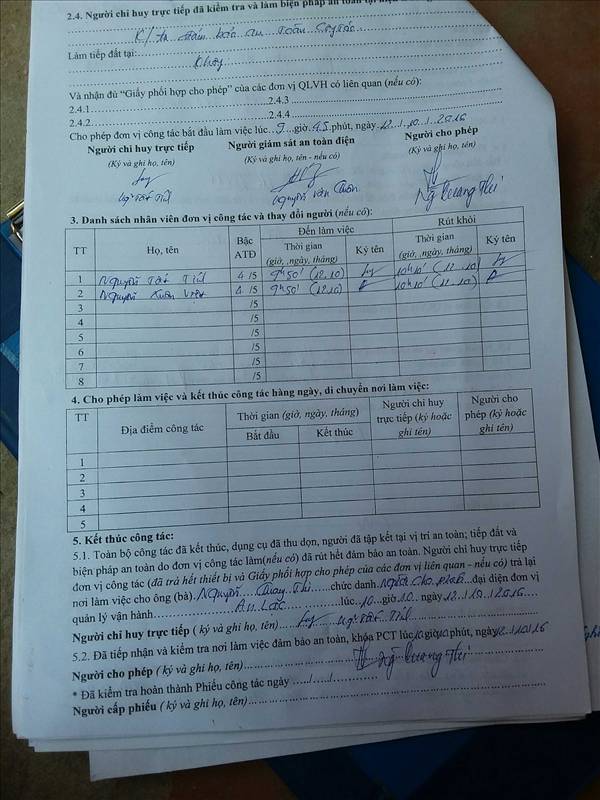 2.4. Người chỉ huy trực tiếp đã kiểm tra và làm biện pháp an toàn tại hiện
K/tra đảm bảo an toàn công tác
Làm tiếp đất tại:
Không
Và nhận đủ “Giấy phối hợp cho phép” của các đơn vị QLVH có liên quan (nếu có):
2.4.1 2.4.3
2.4.2 2.4.4
Cho phép đơn vị công tác bắt đầu làm việc lúc 9 giờ 45 phút, ngày 12 / 10 / 2016
Người chỉ huy trực tiếp Người giám sát an toàn điện Người cho phép
(Ký và ghi họ, tên) (Ký và ghi họ, tên - nếu có) (Ký và ghi họ, tên)
Nguyễn Văn Ng Quang Thi
3. Danh sách nhân viên đơn vị công tác và thay đổi người (nếu có):
TT Họ, tên Bậc ATĐ Đến làm việc Rút khỏi
Thời gian (giờ, ,ngày, tháng) Ký tên Thời gian (giờ, ,ngày, tháng) Ký tên
1 Nguyễn Tất 4 /5 9h50' (12.10) 10h10' (12.10)
2 Nguyễn Xuân Việt 4 /5 9h50' (12.10) 10h10' (12.10)
3 /5
4 /5
5 /5
6 /5
7 /5
8 /5
4. Cho phép làm việc và kết thúc công tác hàng ngày, di chuyển nơi làm việc:
TT Địa điểm công tác Thời gian (giờ, ngày, tháng) Người chỉ huy trực tiếp (ký hoặc ghi tên) Người cho phép (ký hoặc ghi tên)
Bắt đầu Kết thúc
1
2
3
4
5
5. Kết thúc công tác:
5.1. Toàn bộ công tác đã kết thúc, dụng cụ đã thu dọn, người đã tập kết tại vị trí an toàn; tiếp đất và
biện pháp an toàn do đơn vị công tác làm(nếu có) đã rút hết đảm bảo an toàn. Người chỉ huy trực tiếp
đơn vị công tác (đã trả hết thiết bị và Giấy phối hợp cho phép của các đơn vị liên quan - nếu có) trả lại
nơi làm việc cho ông (bà) Nguyễn Quang Thi chức danh Người cho phép đại diện đơn vị
quản lý vận hành An Lão lúc 10 giờ 10 ngày 12 / 10 / 2016
Người chỉ huy trực tiếp ( ký và ghi họ, tên)
5.2. Đã tiếp nhận và kiểm tra nơi làm việc đảm bảo an toàn, khóa PCT lúc 10 giờ 10 phút, ngày 12/10/16
Người cho phép ( ký và ghi họ, tên) Ng Quang Thi
* Đã kiểm tra hoàn thành Phiếu công tác ngày ....../....../......
Người cấp phiếu ( ký và ghi họ, tên)